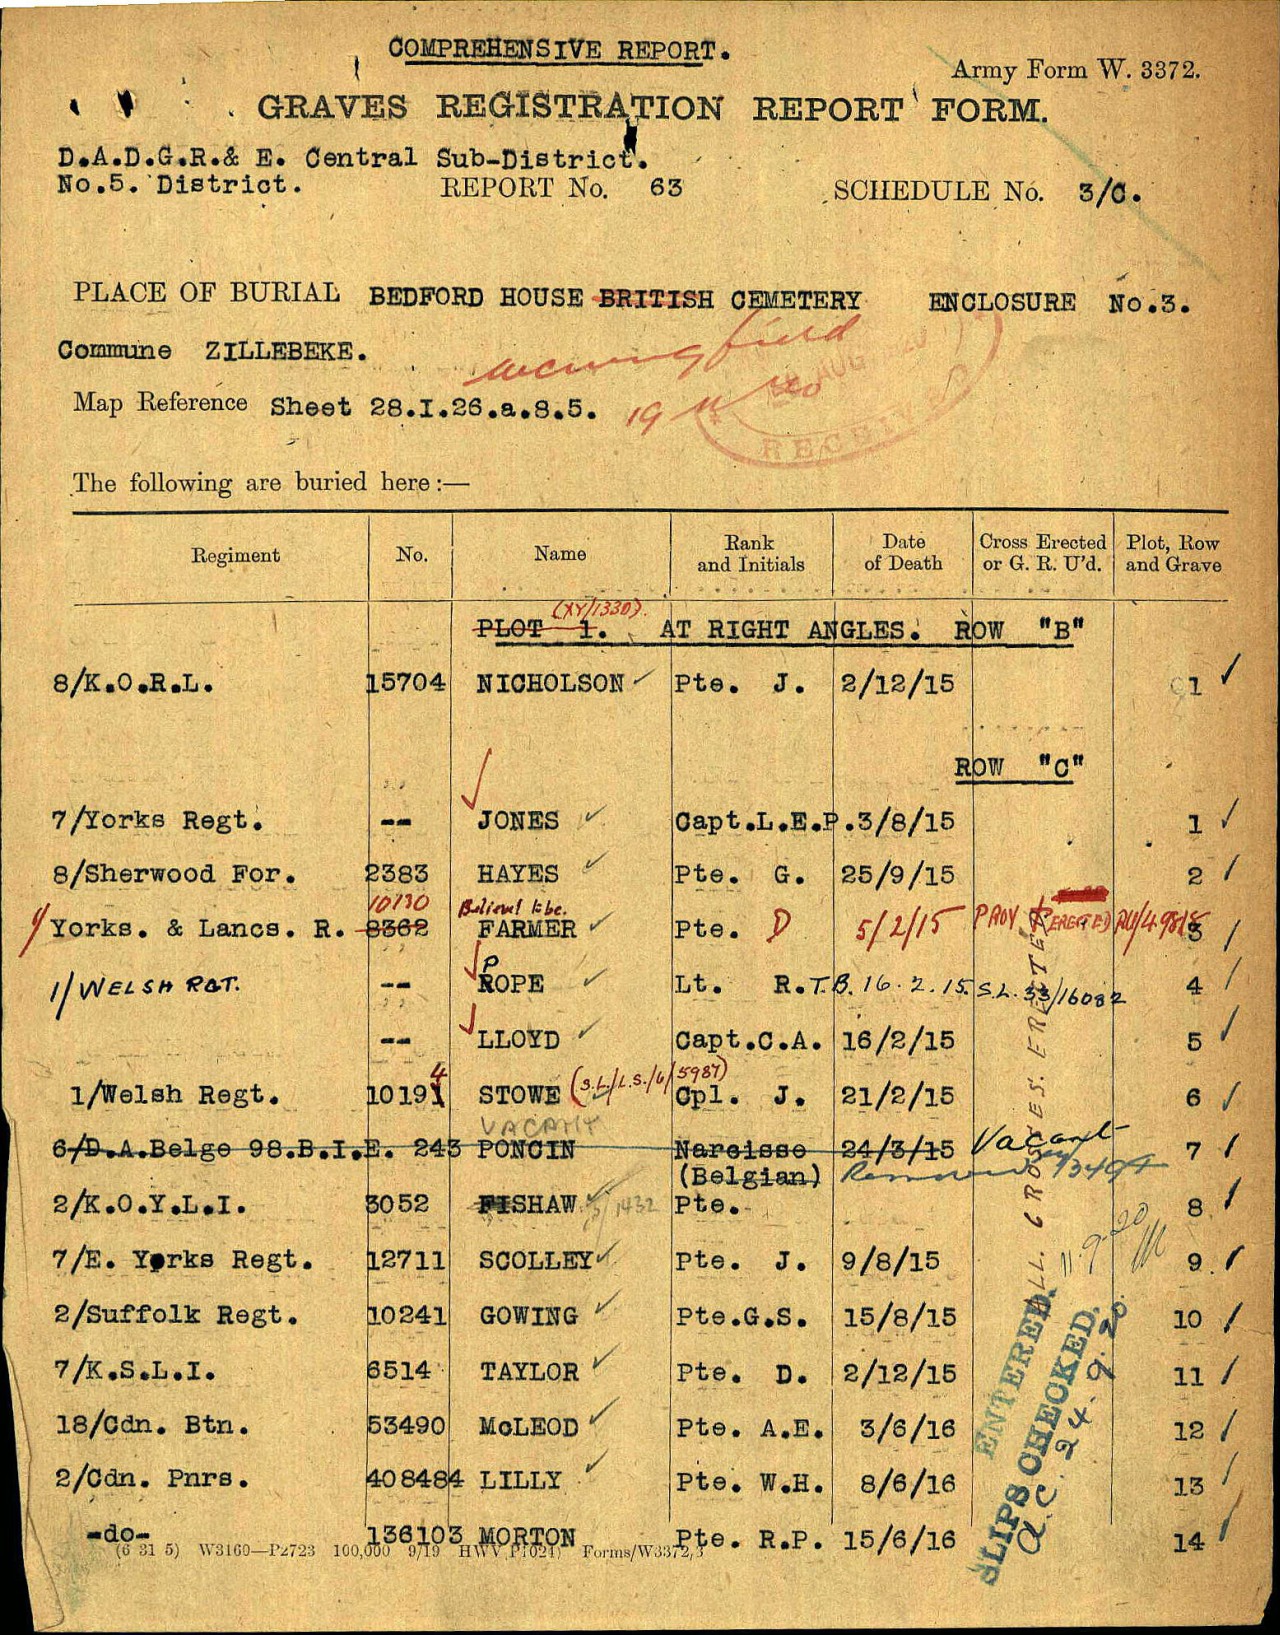 COMPREHENSIVE REPORT.
Army Form W. 3372.
GRAVES REGISTRATION REPORT FORM.
D.A.D.G.R.& E. Central Sub-District.
No.5. District. REPORT No. 63 SCHEDULE No. 3/C.
PLACE OF BURIAL BEDFORD HOUSE BRITISH CEMETERY ENCLOSURE No.3.
Commune ZILLEBEKE.
Map Reference Sheet 28.I.26.a.8.5.
AUG
RECEIVED
The following are buried here :—
Regiment No. Name Rank and Initials Date of Death Cross Erected or G. R. U'd. Plot, Row and Grave
(XY/1330).
PLOT 1. AT RIGHT ANGLES. ROW "B"
8/K.O.R.L. 15704 NICHOLSON Pte. J. 2/12/15 1
ROW "C"
7/Yorks Regt. -- JONES Capt.L.E.P. 3/8/15 1
8/Sherwood For. 2383 HAYES Pte. G. 25/9/15 2
10130 Believed to be.
1/ Yorks. & Lancs. R. 8362 FARMER Pte. D 5/2/15 PROV ERECTED 3
1/ WELSH RGT. -- ROPE P Lt. R.T.B. 16.2.15. S.L. 33/16082 4
-- LLOYD Capt.C.A. 16/2/15 5
1/Welsh Regt. 10191 4 STOWE (S.L./L.S./6/5987) Cpl. J. 21/2/15 6
VACANT
6/D.A.Belge 98.B.I.E. 243 PONCIN Narcisse 24/3/15 Vacant 7
(Belgian) Removed
2/K.O.Y.L.I. 3052 FISHAW Pte. 8
7/E. Yorks Regt. 12711 SCOLLEY Pte. J. 9/8/15 9
2/Suffolk Regt. 10241 GOWING Pte.G.S. 15/8/15 10
7/K.S.L.I. 6514 TAYLOR Pte. D. 2/12/15 11
18/Cdn. Btn. 53490 McLEOD Pte. A.E. 3/6/16 12
2/Cdn. Pnrs. 408484 LILLY Pte. W.H. 8/6/16 13
-do- 136103 MORTON Pte. R.P. 15/6/16 14
ALL CROSSES. ERECTED
11.9.20
ENTERED.
SLIPS CHECKED.
a.c. 24.9.20.
(6 31 5) W3160—P2723 100,000 9/19 HWV Forms/W3372/3